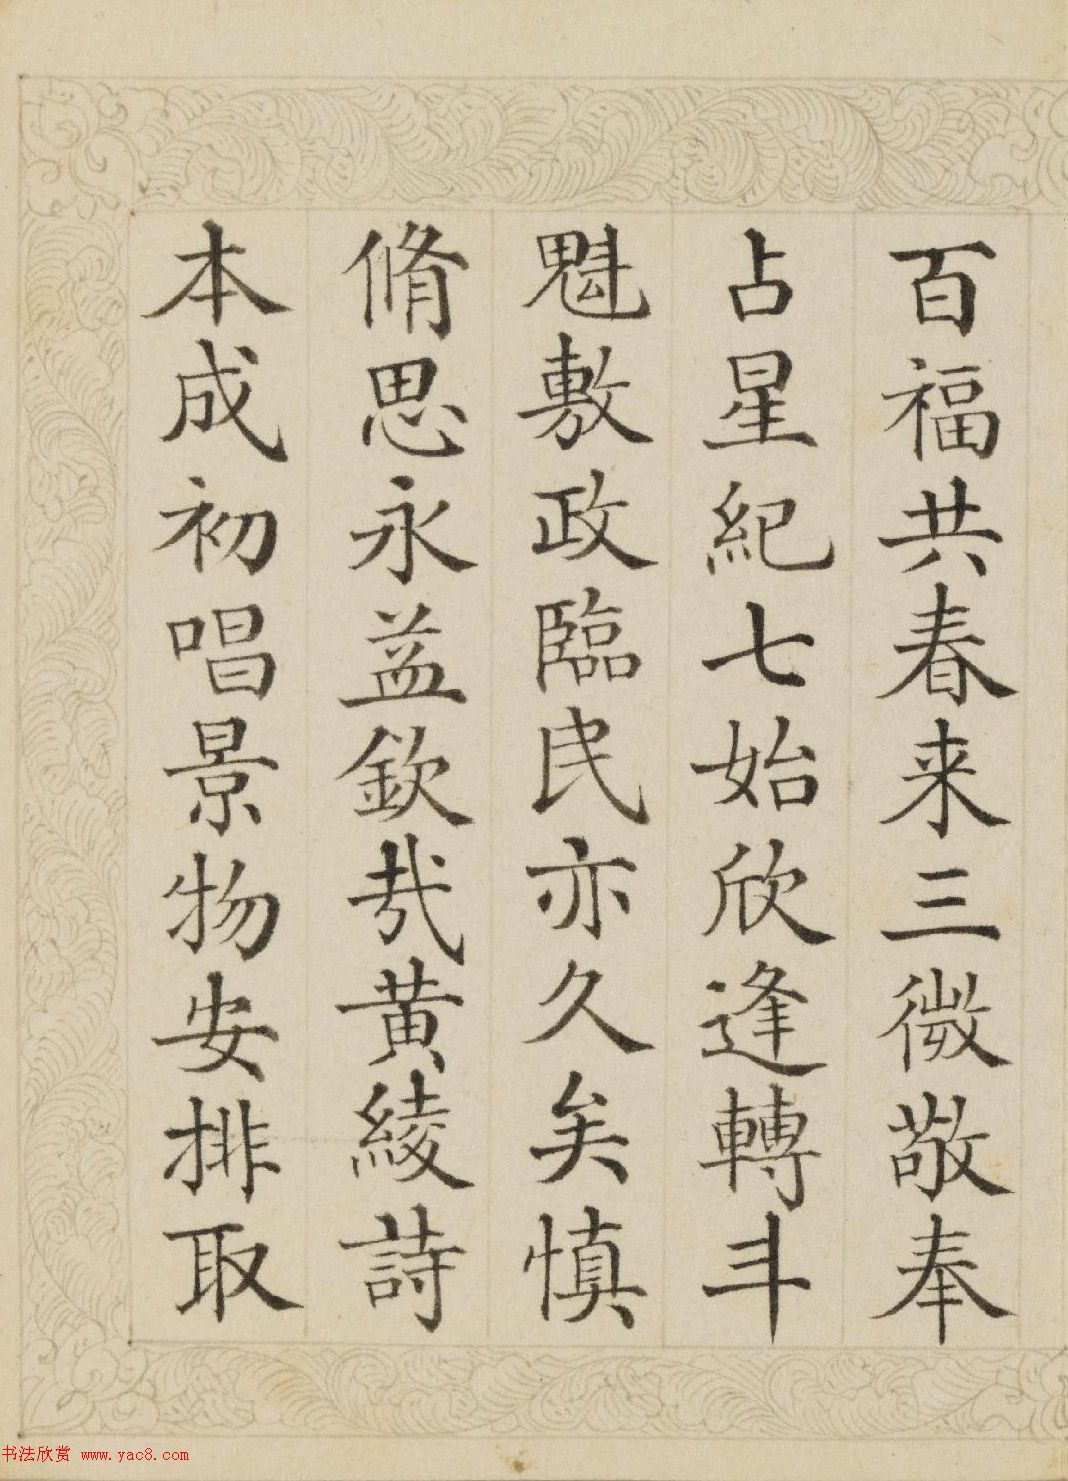 百福共春来三微敬奉
占星紀七始欣逢轉斗
魁敷政臨民亦久矣慎
脩思永益欽哉黄綾詩
本成初唱景物安排取
书法欣赏 www.yac8.com